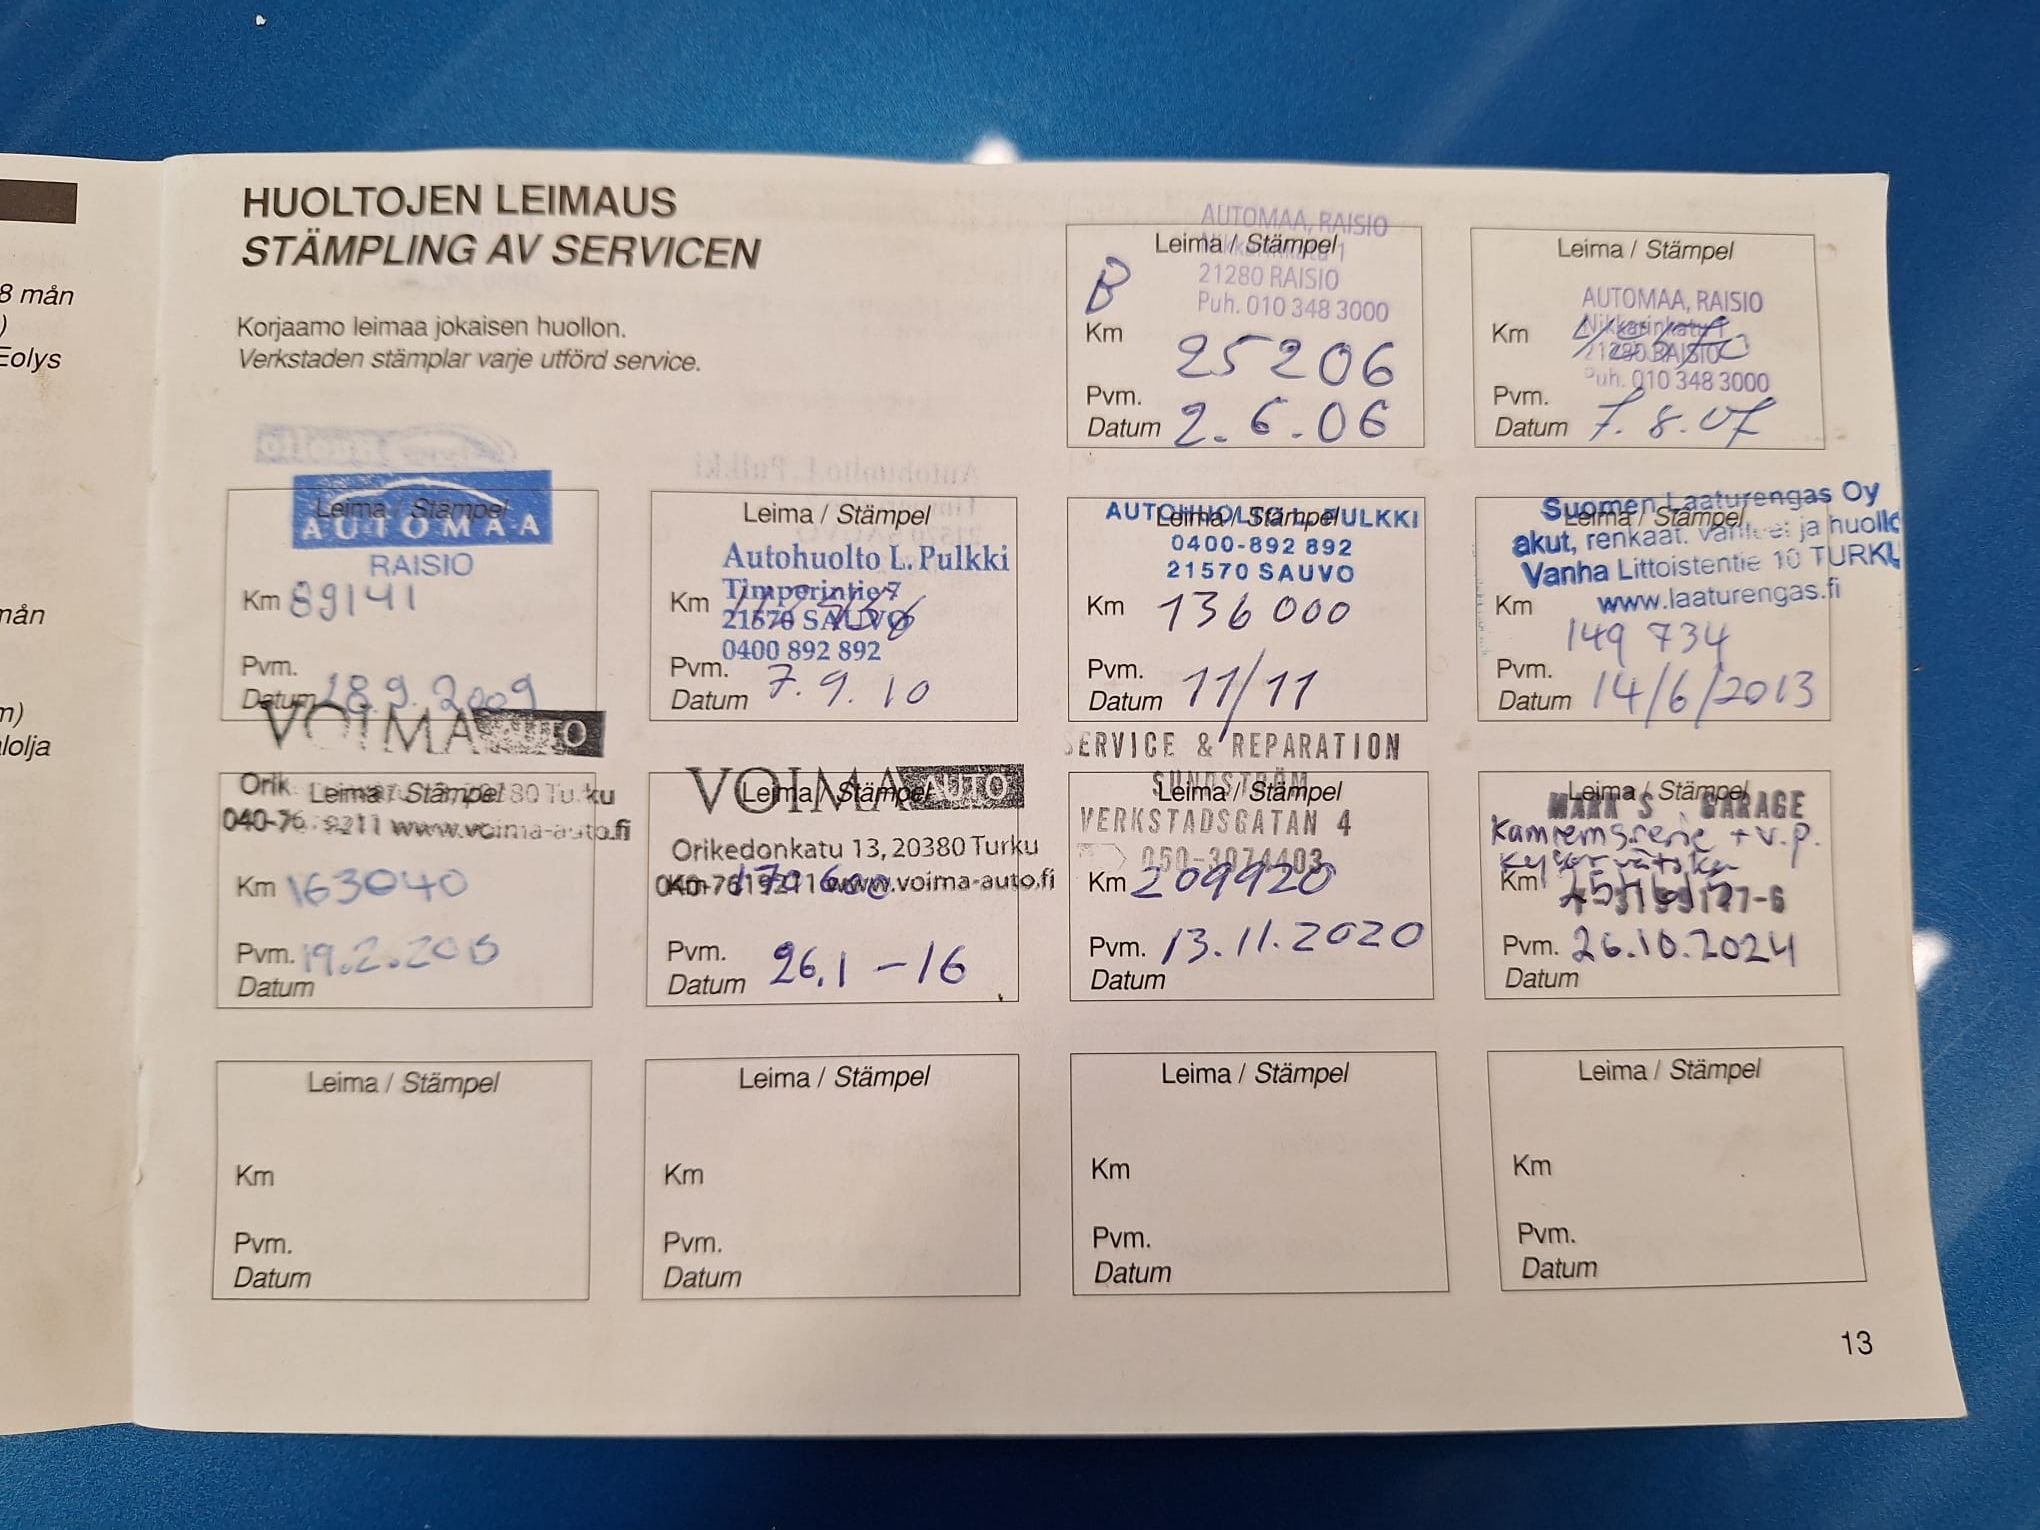 8 mån
)
Eolys
mån
m)
lolja
HUOLTOJEN LEIMAUS
STÄMPLING AV SERVICEN
Korjaamo leimaa jokaisen huollon.
Verkstaden stämplar varje utförd service.
AUTOMAA, RAISIO
Leima / Stämpel
Nikkarinkatu 1
21280 RAISIO
Puh. 010 348 3000
B
Km 25206
Pvm.
Datum 2.6.06
Leima / Stämpel
AUTOMAA, RAISIO
Nikkarinkatu 1
21280 RAISIO
Puh. 010 348 3000
Km
Pvm.
Datum 7.8.07
Leima / Stämpel
AUTOMAA
RAISIO
Km 89141
Pvm.
Datum 18.9.2009
Leima / Stämpel
Autohuolto L. Pulkki
Timperintie 7
21570 SAUVO
0400 892 892
Km
Pvm.
Datum 7.9.10
Leima / Stämpel
AUTOHUOLTO L. PULKKI
0400-892 892
21570 SAUVO
Km 136 000
Pvm.
Datum 11/11
Suomen Laaturengas Oy
Leima / Stämpel
akut, renkaat, vanteet ja huolto
Vanha Littoistentie 10 TURKU
www.laaturengas.fi
Km 149 734
Pvm.
Datum 14/6/2013
VOIMA AUTO
Leima / Stämpel
Turku
www.voima-auto.fi
Km 163040
Pvm.
Datum
VOIMA AUTO
Leima / Stämpel
Orikedonkatu 13, 20380 Turku
040-7619211 www.voima-auto.fi
Km 170 600
Pvm.
Datum 26.1-16
SERVICE & REPARATION
SUNDSTRÖM
Leima / Stämpel
VERKSTADSGATAN 4
050-3074403
Km 209920
Pvm. 13.11.2020
Datum
Leima / Stämpel
MARK'S GARAGE
Kamremsserie + v.p.
kylarvätska
Km
Pvm. 26.10.2024
Datum
Leima / Stämpel
Km
Pvm.
Datum
Leima / Stämpel
Km
Pvm.
Datum
Leima / Stämpel
Km
Pvm.
Datum
Leima / Stämpel
Km
Pvm.
Datum
13